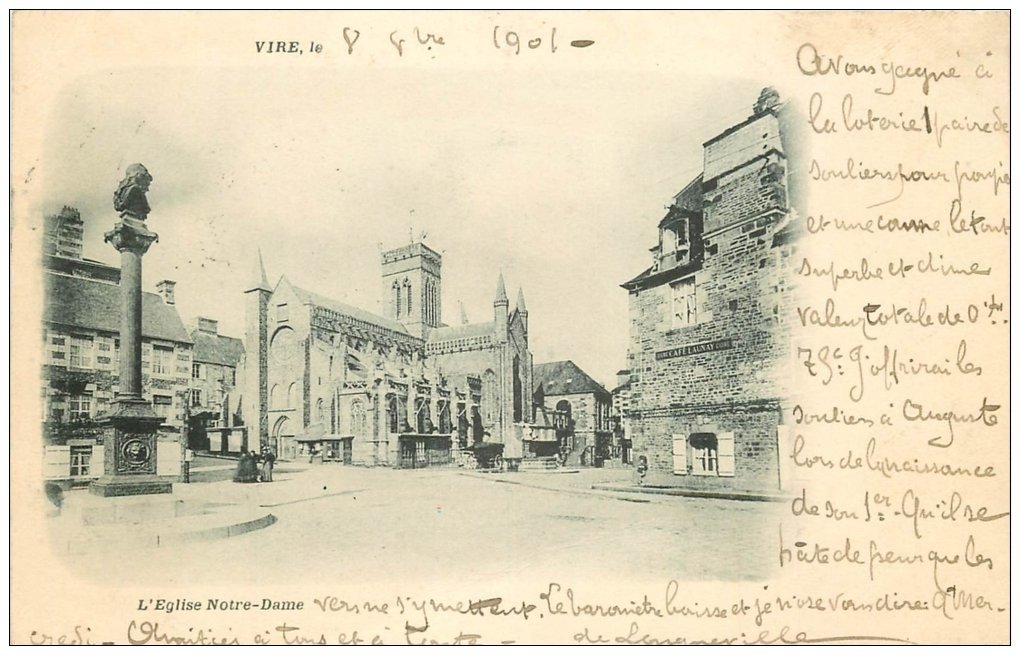 VIRE, le 8 8bre 1901 -
Avons gagné à
la loterie 1 paire de
souliers pour poupée
et une canne, le tout
superbe et d'une
valeur totale de 0
75c. J'offrirai les
souliers à Auguste
lors de la naissance
de son 1er. - Qu'il se
hâte de peur que les
CAFÉ LAUNAY
L'Eglise Notre-Dame vers ne s'y mettent. Le baromètre baisse et je n'ose vous dire: A Mer-
credi - Amitiés à tous et à toute - de Longueville